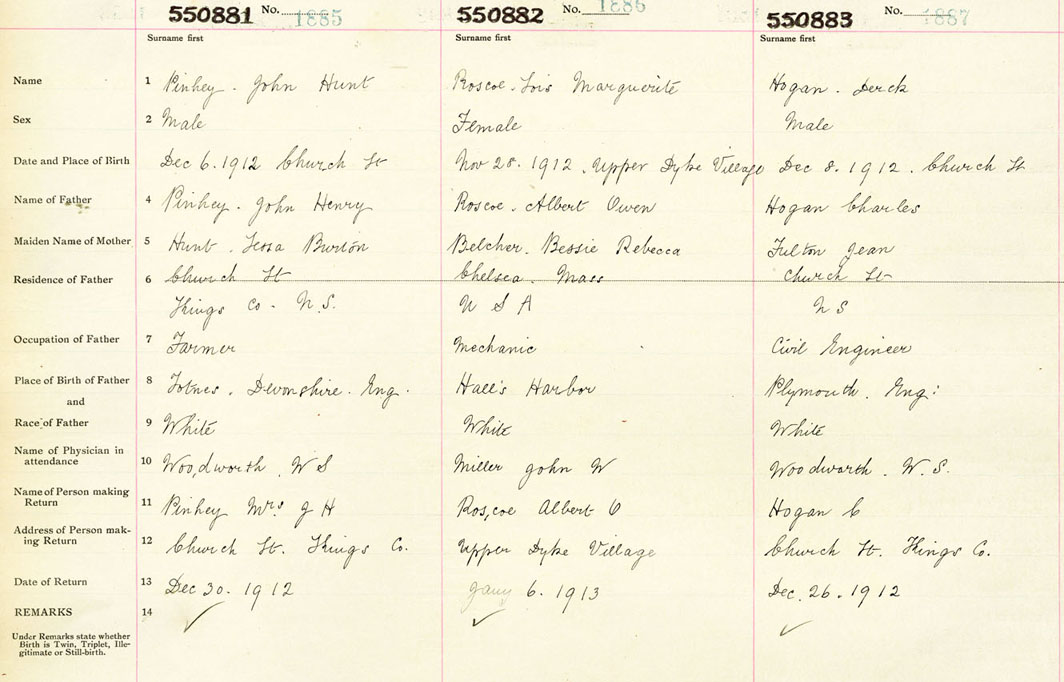 550881 No. 1885 550882 No. 1886 550883 No. 1887
Surname first Surname first Surname first
Name 1 Pinhey. John Hunt Roscoe. Lois Marguerite Hogan. Derck
Sex 2 Male Female Male
Date and Place of Birth 3 Dec 6. 1912 Church St Nov 28. 1912. Upper Dyke Village Dec 8. 1912. Church St
Name of Father 4 Pinhey. John Henry Roscoe. Albert Owen Hogan Charles
Maiden Name of Mother 5 Hunt. Burton Belcher. Bessie Rebecca Fulton Jean
Residence of Father 6 Church St Chelsea. Mass Church St
Kings Co. N.S. U S A N S
Occupation of Father 7 Farmer Mechanic Civil Engineer
Place of Birth of Father 8 Totnes. Devonshire. Eng. Hall's Harbor Plymouth. Eng:
and
Race of Father 9 White White White
Name of Physician in
attendance 10 Woodworth. W S Miller John W Woodworth. W. S.
Name of Person making
Return 11 Pinhey Mrs J H Roscoe Albert O Hogan C
Address of Person mak-
ing Return 12 Church St. Kings Co. Upper Dyke Village Church St. Kings Co.
Date of Return 13 Dec 30. 1912 Jany 6. 1913 Dec. 26. 1912
REMARKS 14 ✓ ✓ ✓
Under Remarks state whether
Birth is Twin, Triplet, Ille-
gitimate or Still-birth.